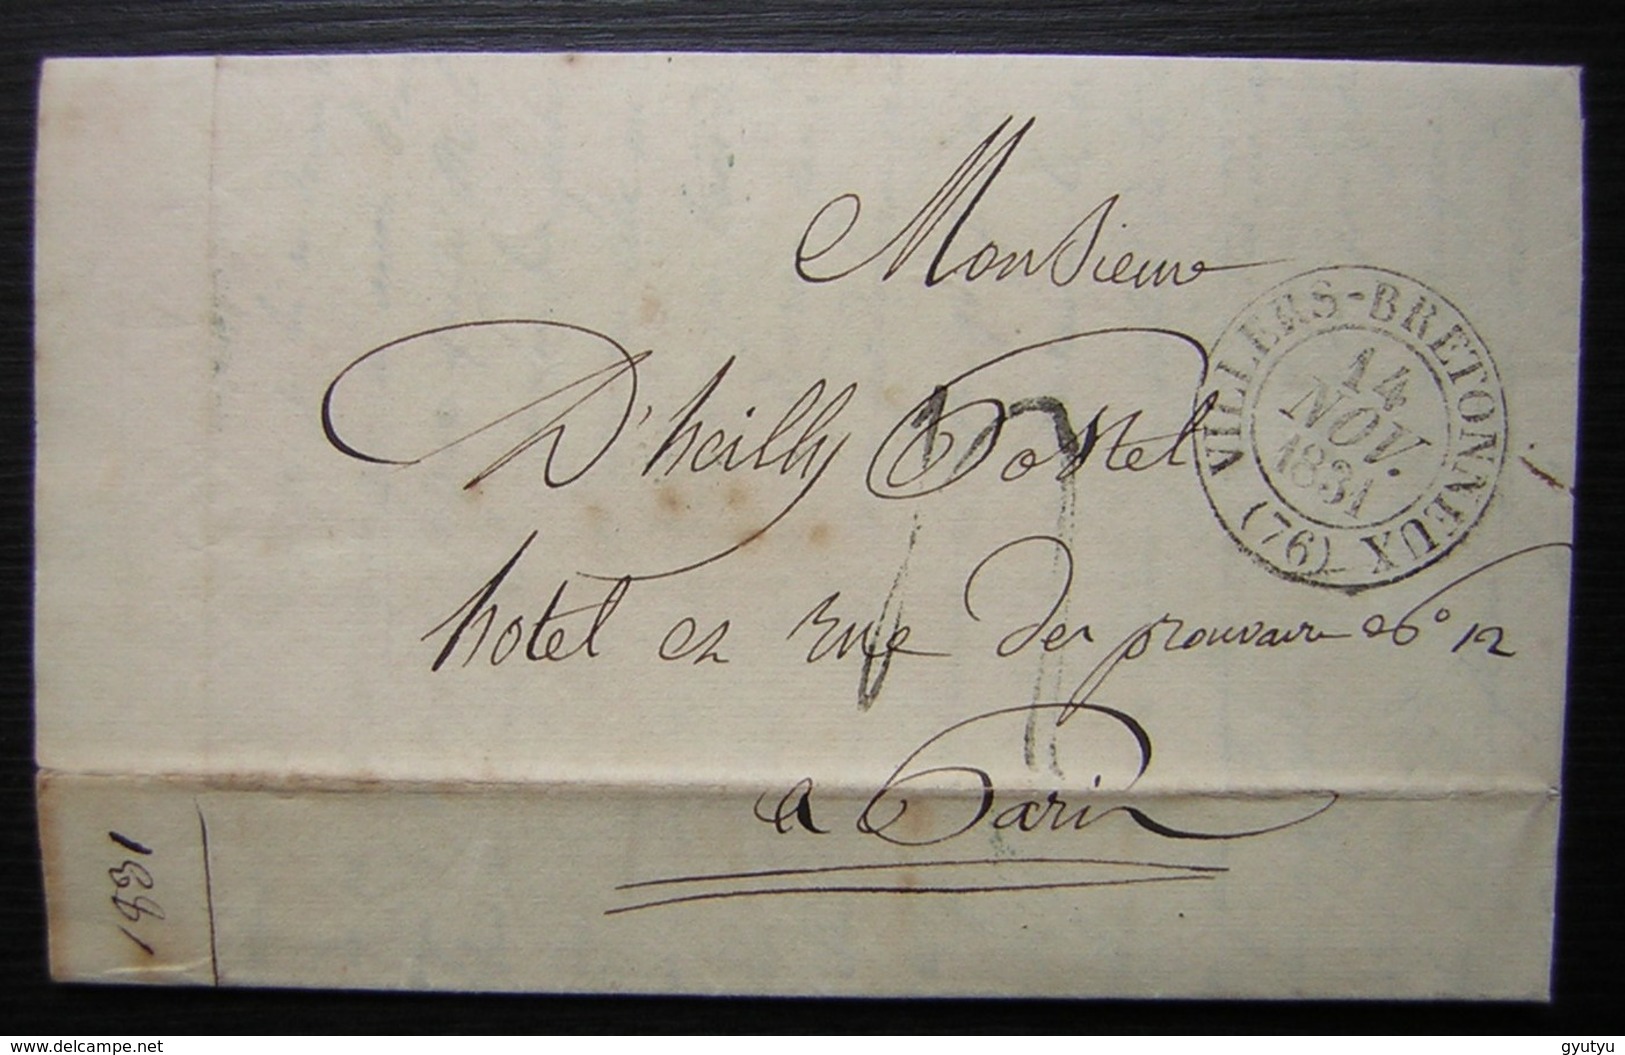 Monsieur
D'heilly Postel
hotel et rue des prouvaires No 12
a Paris
VILLERS-BRETONNEUX (76)
14
NOV.
1831
1831
www.delcampe.net
gyutyu